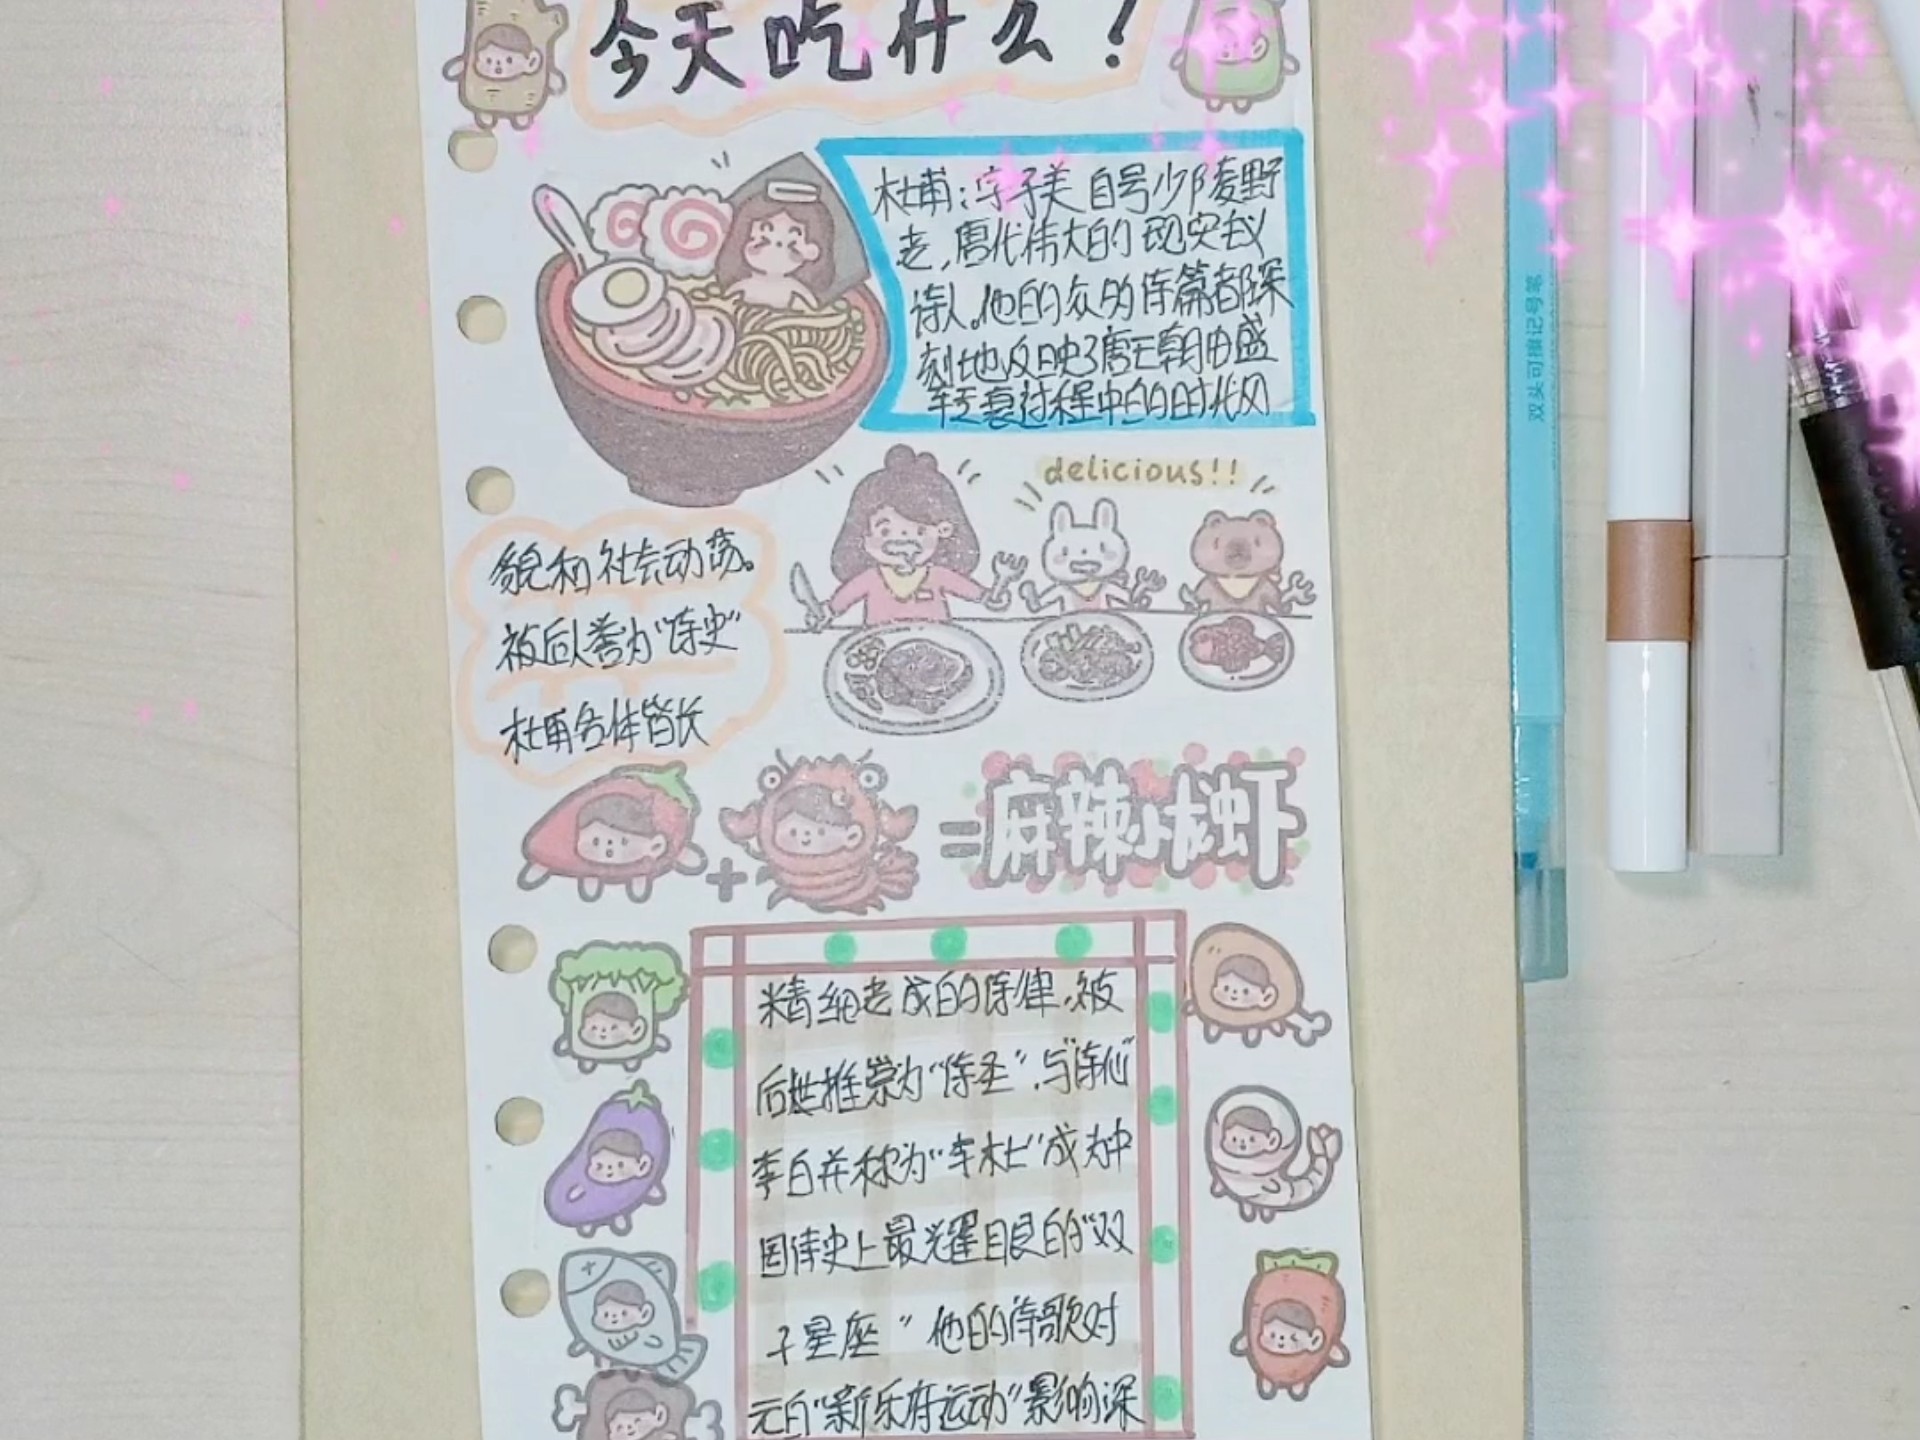 今天吃什么？
杜甫：字子美 自号少陵野
老，唐代伟大的现实主义
诗人。他的众多诗篇都深
刻地反映了唐王朝由盛
转衰过程中的时代风
delicious!!
貌和社会动荡。
被后人誉为“诗史”
杜甫各体皆长
麻辣小龙虾
精纯老成的诗律，被
后世推崇为“诗圣”，与“诗仙”
李白并称为“李杜”成为中
国诗史上最耀眼的“双
子星座” 他的诗歌对
元白“新乐府运动”影响深
双头可擦记号笔